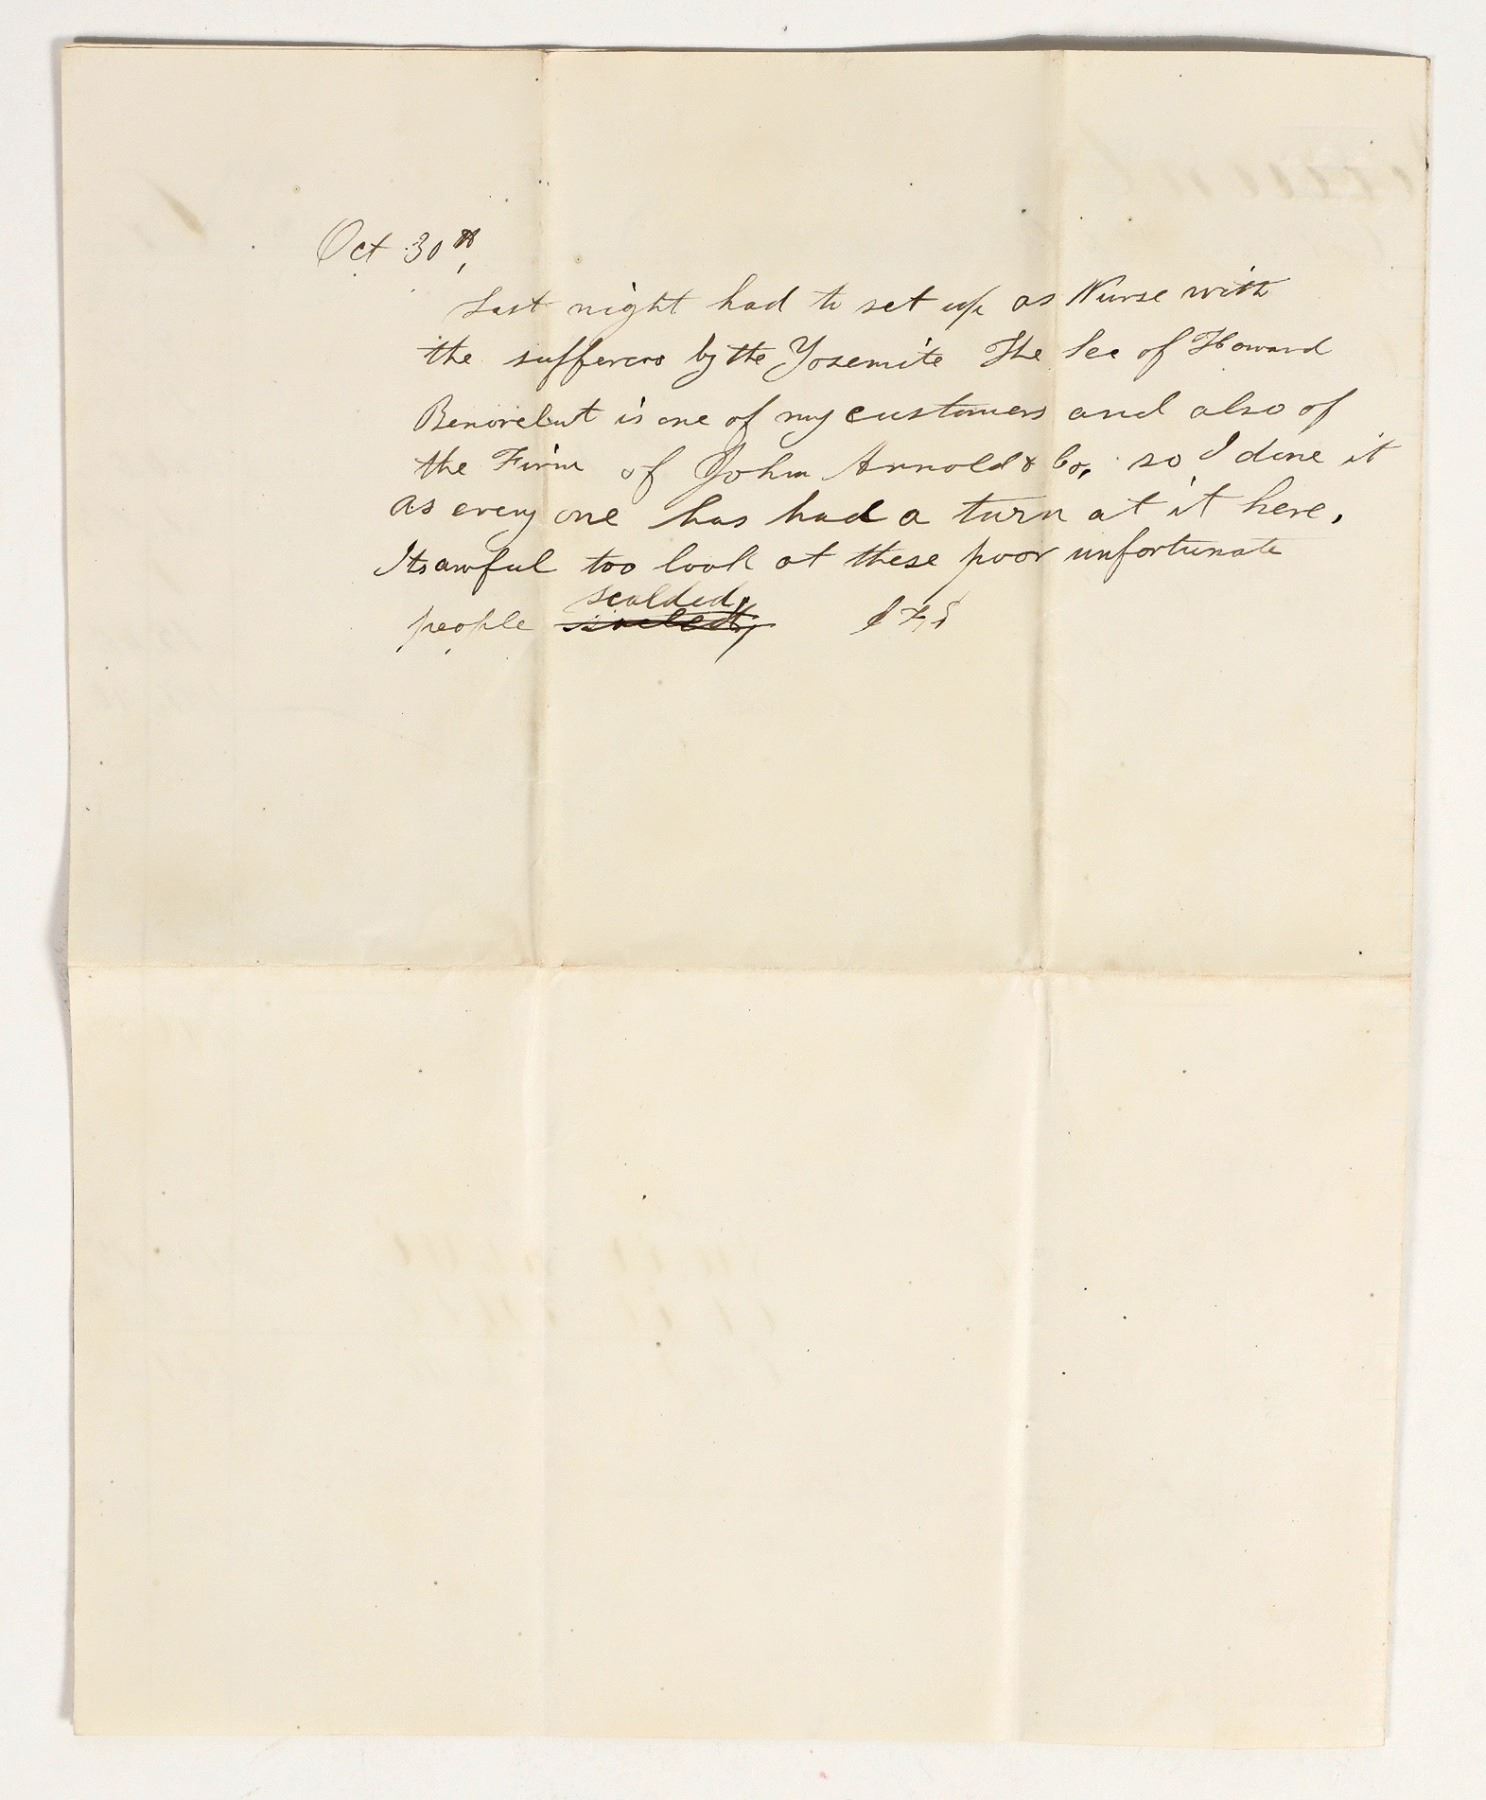 Oct 30th,
Last night had to set up as Nurse with
the sufferers by the Yosemite The Sec of Howard
Benovelent is one of my customers and also of
the Firm of John Arnold & Co, so I done it
as every one has had a turn at it here,
Its awful too look at these poor unfortunate
scalded,
people